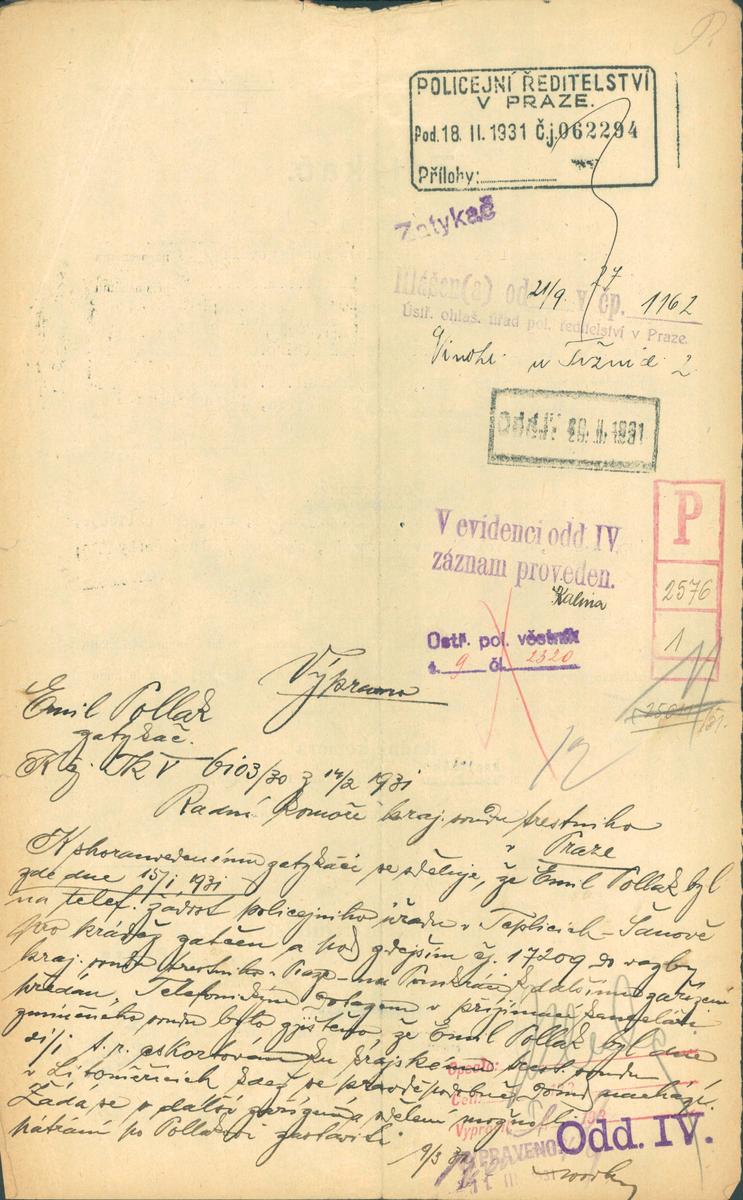 POLICEJNÍ ŘEDITELSTVÍ
V PRAZE.
Pod. 18. II. 1931 Č.j. 062294
Přílohy:
Zatykač
Hlášen(a) od 21/9. 27 v čp. 1162
Ústř. ohlaš. úřad pol. ředitelství v Praze.
Vinohr. u Tržnice 2
20. II. 1931
V evidenci odd. IV.
záznam proveden.
Kalina
P
2576
1
Ústř. pol. věstník
r. 9 čl. 2320
12
Výprava
Emil Pollak
zatykač.
K čj. Tk V 6103/30 z 14/2 1931
Radní komoře kraj. soudu trestního
v Praze
K shorauvedenému zatykači se sděluje, že Emil Pollak byl
zde dne 15/I 1931
na telef. žádost policejního úřadu v Teplicích-Šanově
pro krádež zatčen a pod zdejším čj. 17209 do vazby
kraj. soudu trestního v Praze na Pankráci k dalšímu zařízení
předán. Telefonickým dotazem v přijímací kanceláři
zmíněného soudu bylo zjištěno, že Emil Pollak byl dne
t. r. eskortován ku krajskému trest. soudu
v Litoměřicích kdež se pravděpodobně dosud nachází.
Žádá se o další a sdělení možno-li
pátrání po Pollakovi zastaviti.
9/3 31
Opsalo:
Vypraveno:
VYPRAVENO
III
Odd. IV.